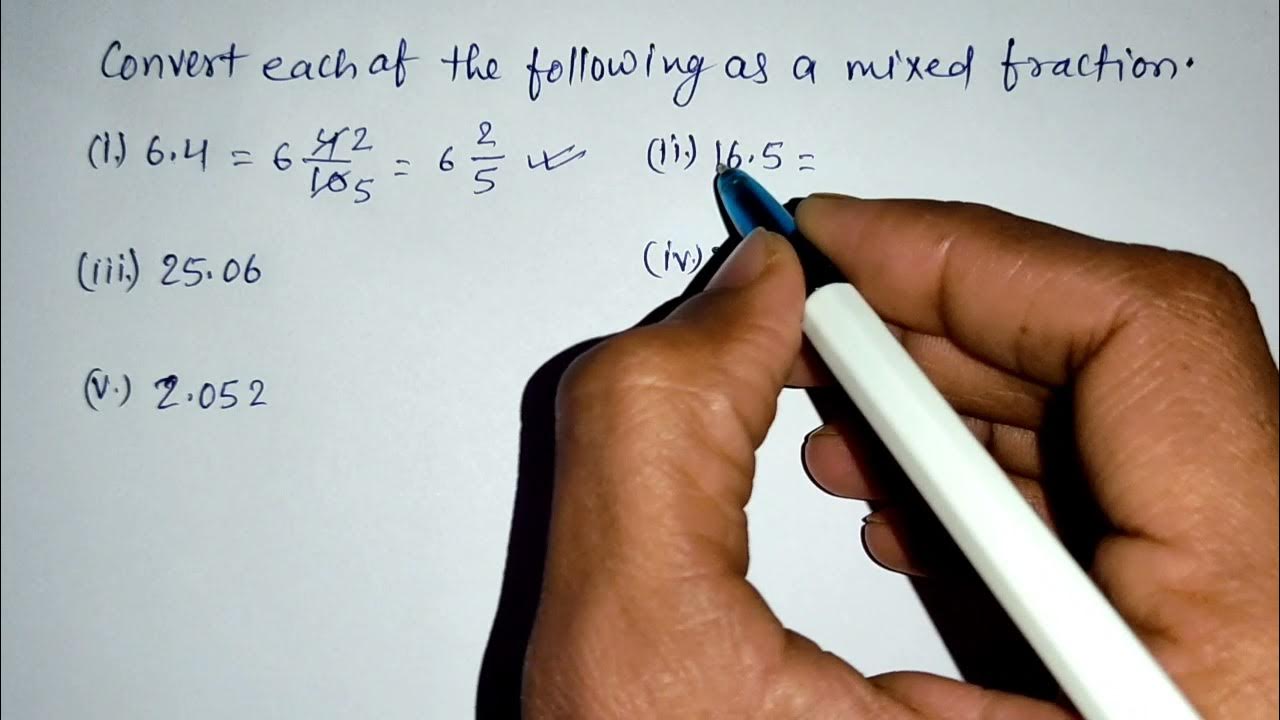 Convert each of the following as a mixed fraction.
(i.) 6.4 = 6 4/10 2 5 = 6 2/5 (ii.) 16.5 =
(iii.) 25.06 (iv.)
(v.) 2.052